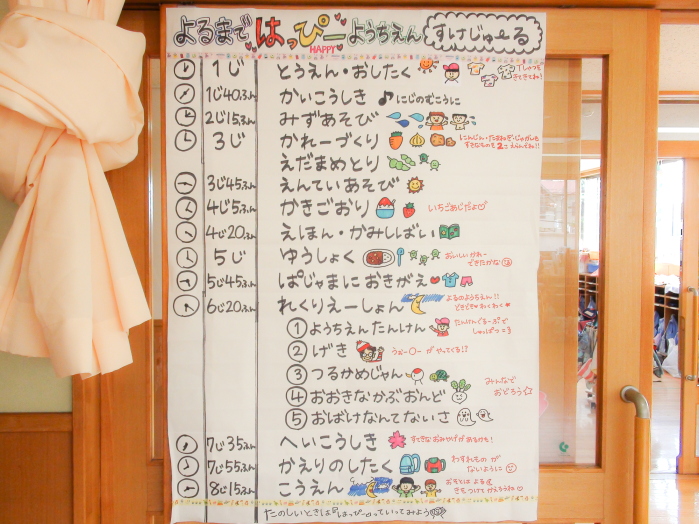 よるまで はっぴーようちえん すけじゅ〜る
HAPPY
1じ とうえん・おしたく Tしゃつを きてきてね!
1じ40ふん かいこうしき ♪にじのむこうに
2じ15ふん みずあそび
3じ かれーづくり にんじん・たまねぎ・じゃがいも すきなものを2つ えらんでね!!
えだまめとり
3じ45ふん えんていあそび
4じ5ふん かきごおり いちごあじだよ♡
4じ20ふん えほん・かみしばい
5じ ゆうしょく おいしいかれー できたかな
5じ45ふん ぱじゃまに おきがえ
6じ20ふん れくりえーしょん よるのようちえん!! どきどきわくわく
①ようちえんたんけん たんけんぐるーぷで しゅっぱつ
②げき うぉーO〜 がやってくる!?
③つるかめじゃん
④おおきなかぶおんど みんなで おどろう
⑤おばけなんてないさ
7じ35ふん へいこうしき すてきなおみやげがあるかも!
7じ55ふん かえりのしたく わすれものが ないように
8じ15ふん こうえん おそとはよる きをつけてかえろうね
たのしいときは『はっぴー』っていってみよう